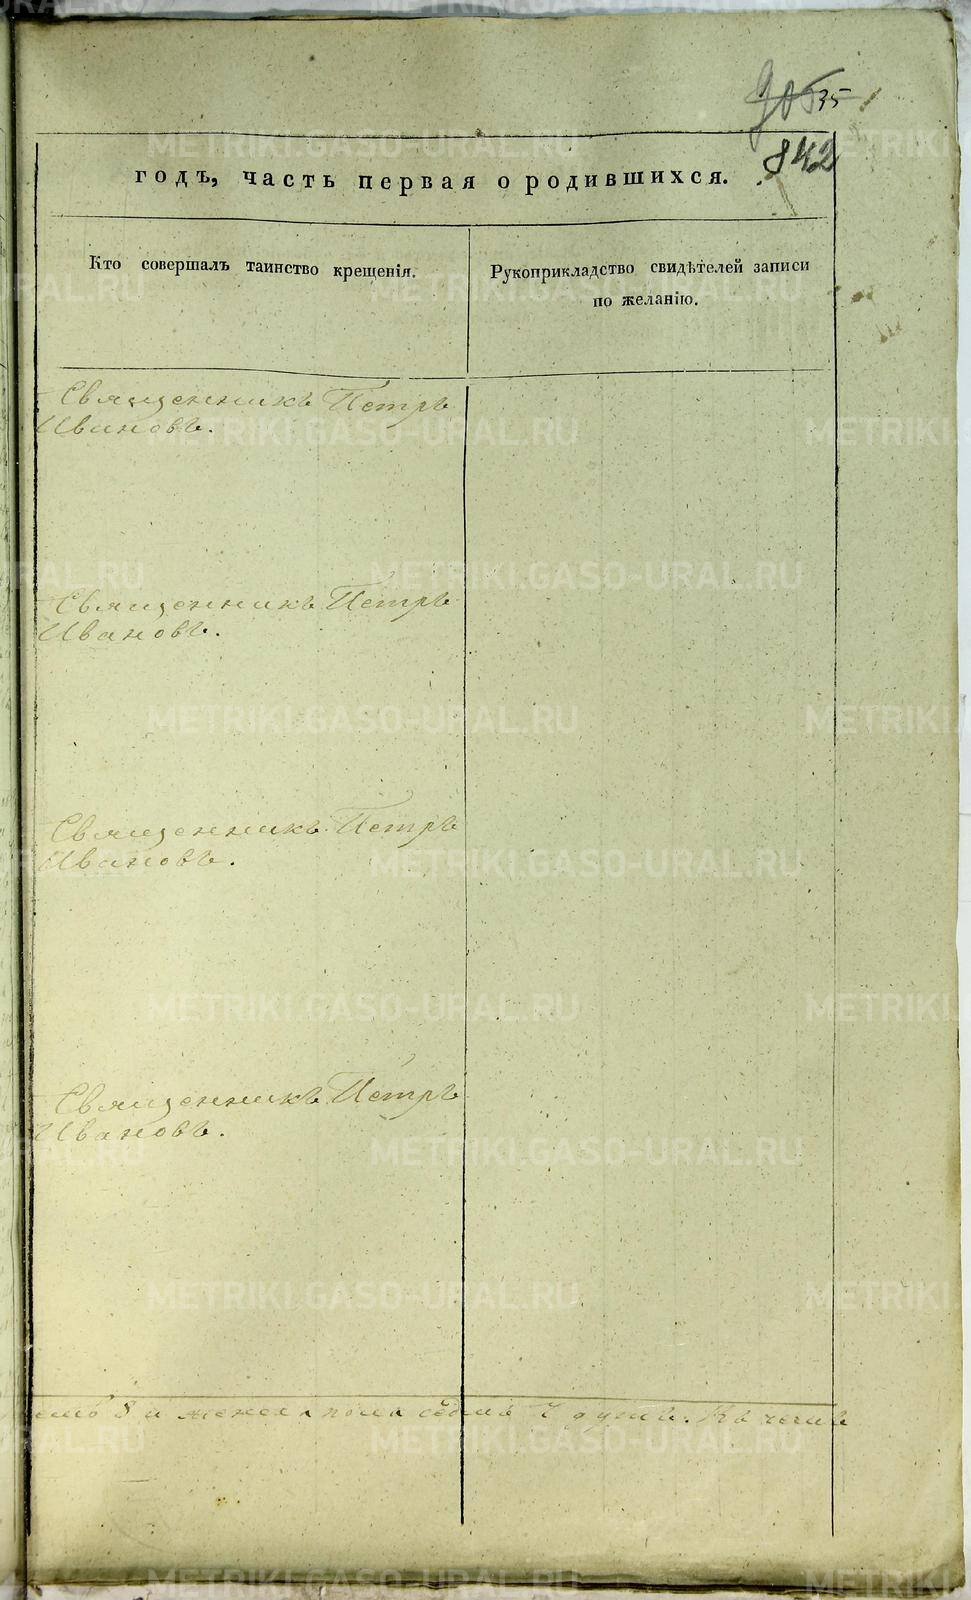 35
842
годъ, часть первая о родившихся.
Кто совершалъ таинство крещенія.
Рукоприкладство свидѣтелей записи
по желанію.
Священникъ Петръ
Ивановъ.
Священникъ Петръ
Ивановъ.
Священникъ Петръ
Ивановъ.
Священникъ Петръ
Ивановъ.
8 и женска пола седмь 7 душъ.
METRIKI.GASO-URAL.RU